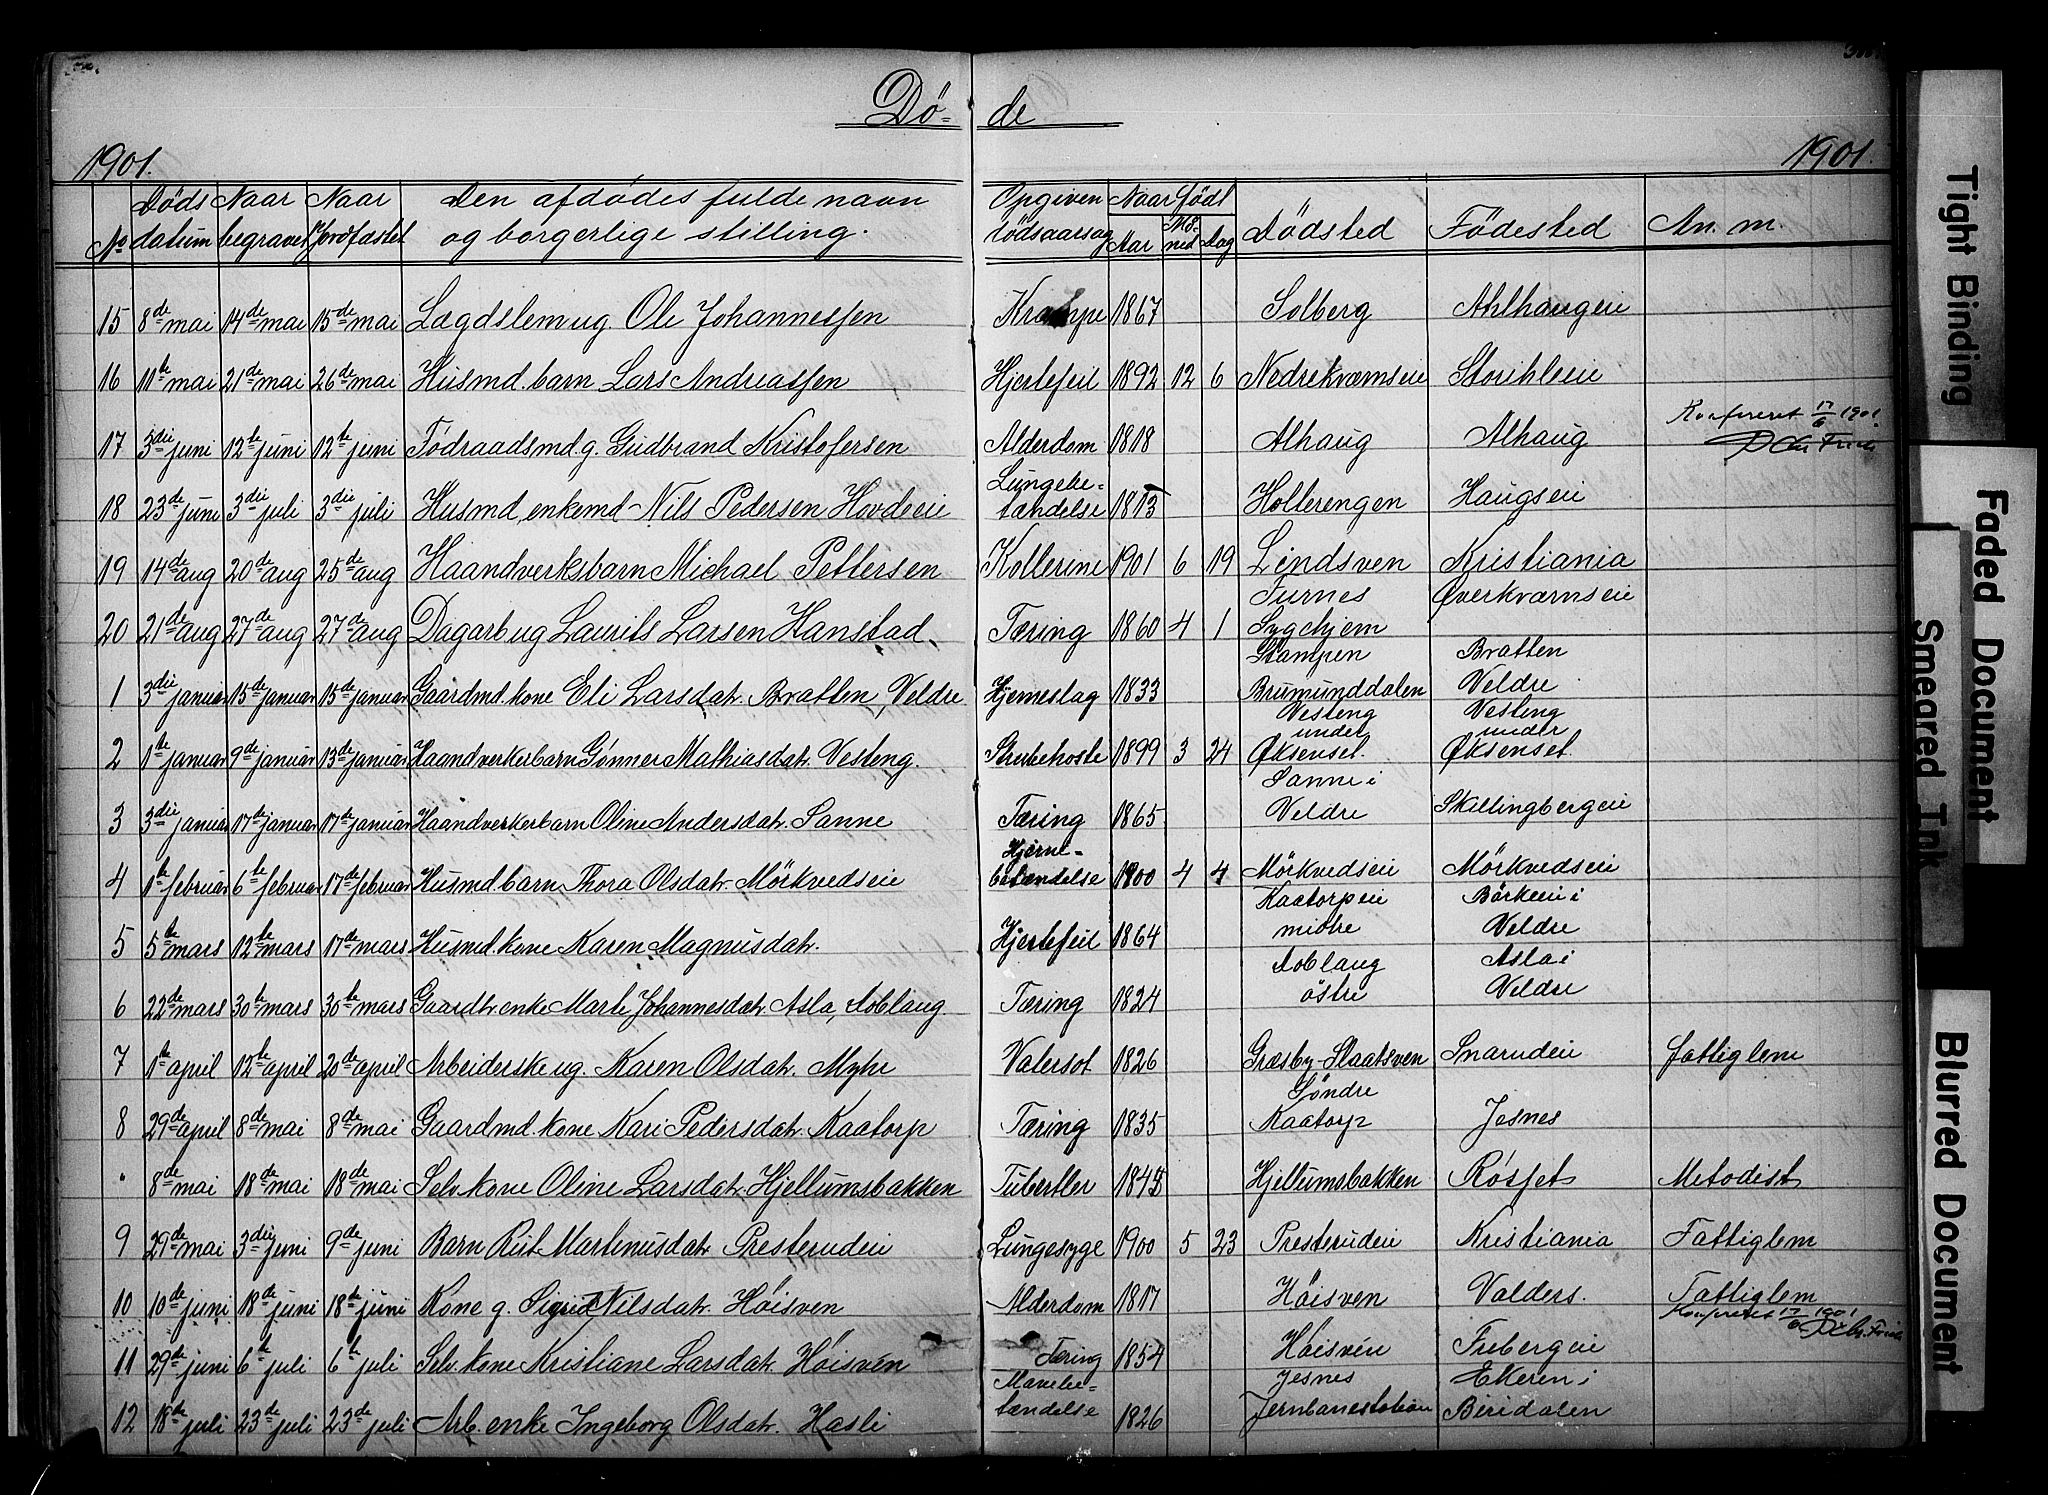 Dö- de
1901. 1901.
No Døds datum Naar begravet Naar Jordfæstet Den afdödes fulde navn og borgerlige stilling. Opgiven dödsaarsag Naar födt Aar Maaned Dag Dödsted Födested An. m.
15 8de mai 14de mai 15de mai Lægdslem ug. Ole Johannessen Krampe 1867 Solberg Ahlhaugeie
16 11te mai 21de mai 26de mai Husmd. barn Lars Andreassen Hjertefeil 1892 12 6 Nedrekværnseie Storihleeie
Konfereret 17/6 1901.
17 3die juni 12te juni 12te juni Födraadsmd. g. Gudbrand Kristofersen Alderdom 1818 Alhaug Alhaug
18 23de juni 3die juli 3die juli Husmd, enkemd Nils Pedersen Hovdeeie Lungebe= tændelse 1813 Holterengen Haugseie
19 14de aug 20de aug 25de aug Haandverksbarn Michael Pettersen Kollerine 1901 6 19 Lindsven Kristiania
20 21de aug 27de aug 27de aug Dagarb ug Laurits Larsen Hanstad. Tæring 1860 4 1 Furnes Sygehjem Øverkværnseie
1 3die januar 15de januar 15de januar Gaardmd. kone Eli Larsdatr. Bratten, Veldre Hjerneslag 1833 Stampen Brumunddalen Bratten Veldre
2 1te januar 9de januar 13de januar Haandverkerbarn Gønner Mathiasdatr. Vesteng. Strubehoste 1899 3 24 Vesteng under Øksenset. Vesteng under Øksenset.
3 3die januar 17de januar 17de januar Haandverkerbarn Oline Andersdatr. Sanne Tæring 1865 Sanne i Veldre Skillingbergeie
4 1te februar 6te februar 17de februar Husmd barn Thora Olsdatr. Mörkvedseie Hjerne- betændelse 1900 4 4 Mörkvedseie Mörkvedseie
5 5te mars 12te mars 17de mars Husmd. kone Karen Magnusdatr. Hjertefeil 1864 Kaatorpeie midtre Börkeeie i Veldre
6 22de mars 30te mars 30te mars Gaardbr. enke Marte Johannesdatr. Asla, Doblaug. Tæring 1824 Doblaug östre Asla i Veldre
7 1te april 12te april 20de april Arbeiderske ug. Karen Olsdatr. Myhr Vatersot 1826 Græsby-Slaatsven Snarudeie fattiglem
8 29de april 8de mai 8de mai Gaardmd. kone Kari Pedersdatr. Kaatorp Tæring 1835 Søndre Kaatorp Jesnes
" 8de mai 18de mai 18de mai Selv. kone Oline Larsdatr. Hjellumsbakken Tubertler Hjellumsbakken Røsset Metodist
9 29de mai 3die juni 9de juni Barn Rut Martinusdatr Presterudeie Lungesyge 1900 5 23 Presterudeie Kristiania Fattiglem
10 10de juni 18de juni 18de juni Kone g. Sigrid Nilsdatr. Höisven Alderdom 1817 Höisven Valders. Fattiglem
Konfereret 17/6 1901
11 29de juni 6te juli 6te juli Selv. kone Kristiane Larsdatr. Höisven Tæring 1854 Höisven Frebergeie
12 18de juli 23de juli 23de juli Arb. enke Ingeborg Olsdatr. Hasli Mavebe= tændelse 1826 Jesnes Jernbanestation Ekeren i Biridalen
Tight Binding
Faded Document
Smeared Ink
Blurred Document